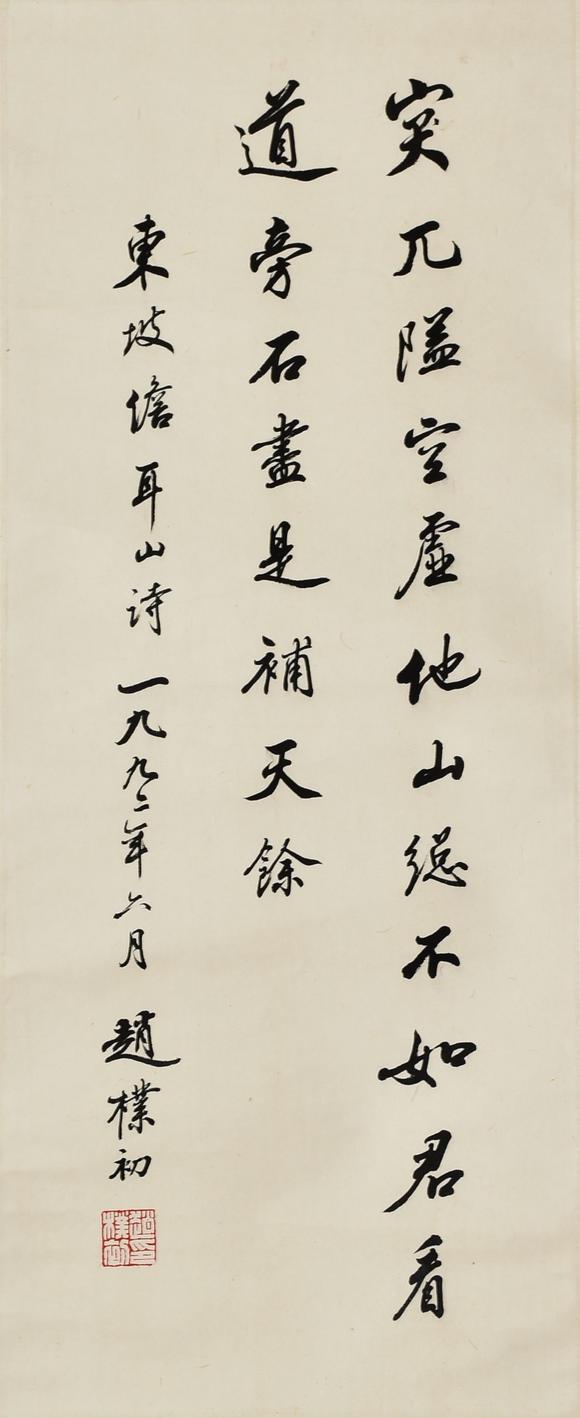 突兀隘空虛他山總不如君看
道旁石盡是補天餘
東坡儋耳山詩一九九二年六月 趙樸初
趙樸初印